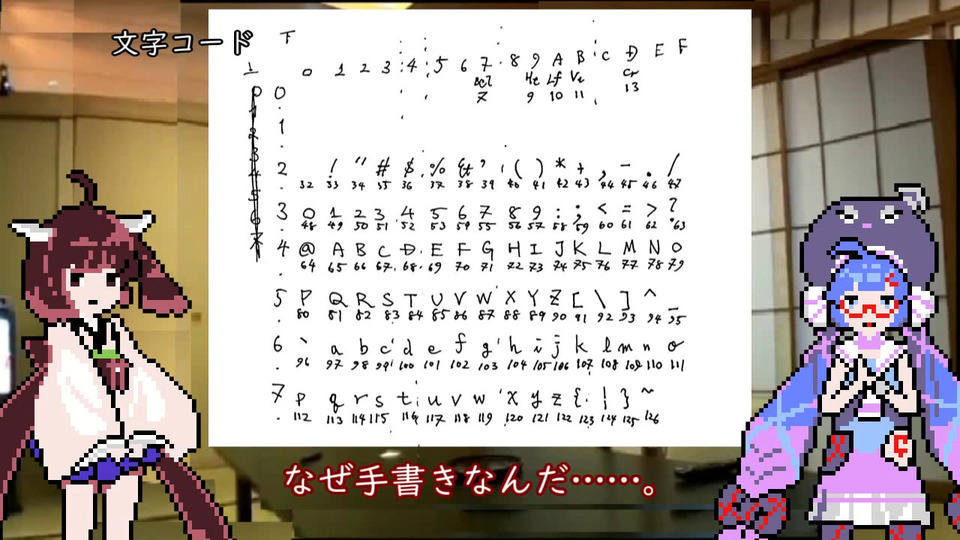 文字コード
下
上 0 1 2 3 4 5 6 7 8 9 A B C D E F
Ht Lf Vt Cr
7 9 10 11 13
0 0
1
2 ! " # $ % & ' ( ) * + , - . /
32 33 34 35 36 37 38 39 40 41 42 43 44 45 46 47
3 0 1 2 3 4 5 6 7 8 9 : ; < = > ?
48 49 50 51 52 53 54 55 56 57 58 59 60 61 62 63
4 @ A B C D E F G H I J K L M N O
64 65 66 67 68 69 70 71 72 73 74 75 76 77 78 79
5 P Q R S T U V W X Y Z [ \ ] ^ _
80 81 82 83 84 85 86 87 88 89 90 91 92 93 94 95
6 ` a b c d e f g h i j k l m n o
96 97 98 99 100 101 102 103 104 105 106 107 108 109 110 111
7 p q r s t u v w x y z { | } ~
112 113 114 115 116 117 118 119 120 121 122 123 124 125 126
なぜ手書きなんだ……。